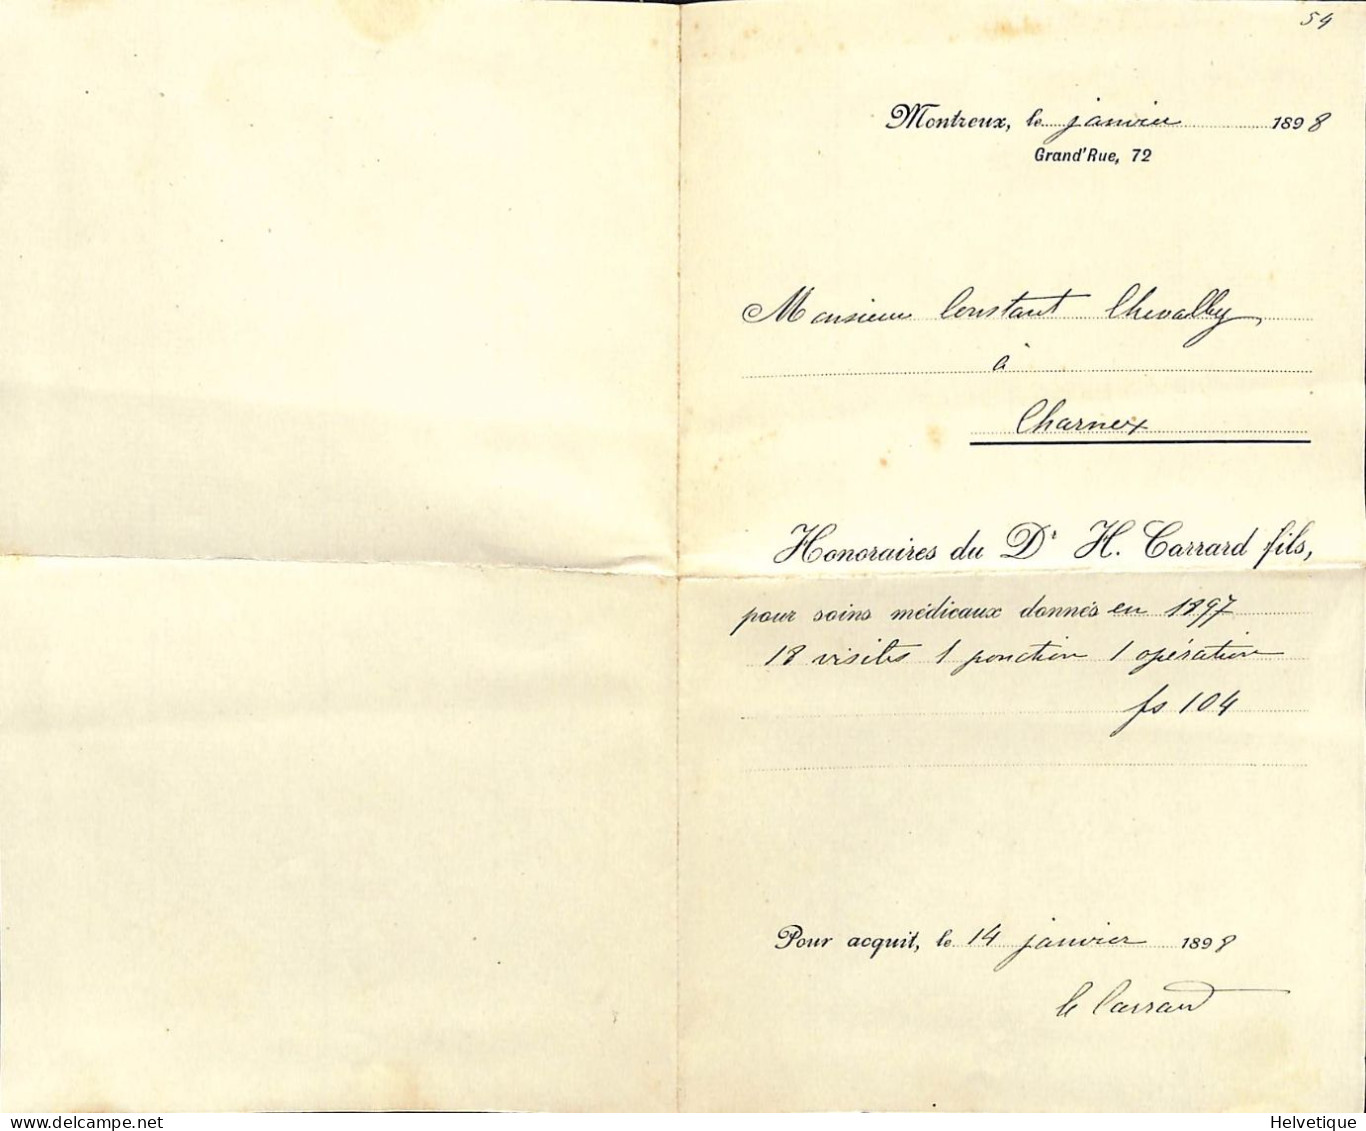 54
Montreux, le janvier 1898
Grand'Rue, 72
Monsieur Constant Chevalley
à
Charnex
Honoraires du Dr H. Carrard fils,
pour soins médicaux donnés en 1897
18 visites 1 ponction 1 opération
fs 104
Pour acquit, le 14 janvier 1898
Carrard
delcampe.net
Helvetique